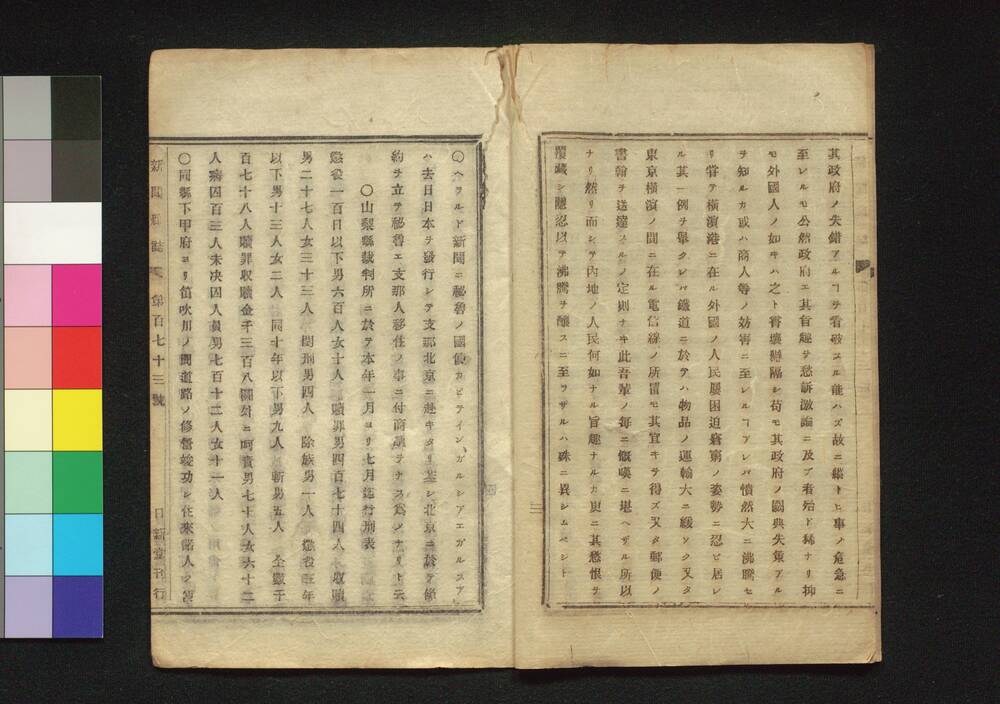 其政府ノ失錯アルヿヲ看破スル能ハズ故ニ縱トヒ事ノ危急ニ
至レルモ公然政府エ其旨趣ヲ愁訴激論ニ及ブ者殆ド稀ナリ抑
モ外國人ノ如キハ之ト霄壤懸隔シ苟モ其政府ノ闕典失策アル
ヲ知ルカ或ハ商人等ノ妨害ニ至レルヿアレバ憤然大ニ沸騰セ
リ甞テ横濱港ニ在ル外國ノ人民屢困迫窘窮ノ姿勢ニ忍ヒ居レ
ル其一例ヲ擧クレバ鐵道ニ於テハ物品ノ運輸大ニ緩ソク又タ
東京横濱ノ間ニ在ル電信線ノ所置モ其宜キヲ得ズ又タ郵便ノ
書翰ヲ送達スルノ定則ナキ此吾輩ノ毎ニ慨嘆ニ堪ヘザル所以
ナリ然リ而シテ内地ノ人民何如ナル旨趣ナルカ更ニ其愁恨ヲ
覆藏シ隱忍以テ沸騰ヲ釀スニ至ラザルハ殊ニ異シムベシト
〇ヘラルド新聞ニ秘魯ノ國使カピテインガルシアエガルスアハ
ハ去日日本ヲ發行シテ支那北京ニ赴キタリ葢シ北京ニ於テ條
約ヲ立テ秘魯エ支那人移住ノ事ニ付商議ヲナス爲メナリト云
〇山梨縣裁判所ニ於テ本年一月ヨリ七月迄行刑表
懲役一百日以下男六百人女十人 贖罪男四百七十四人 收贖
男二十七人女三十三人 閏刑男四人 除族男一人 懲役三年
以下男十三人女二人 同十年以下男九人 斬男五人 全數千
百七十八人贖罪收贖金千三百八圓外ニ呵責男七十人女六十二
人病囚百三人未决囚人員男七百十二人女十一人
〇同縣下甲府ヨリ笛吹川ノ間道路ノ修繕竣功シ往來諸人ノ
新聞雜誌 第百七十三號 日新堂刊行